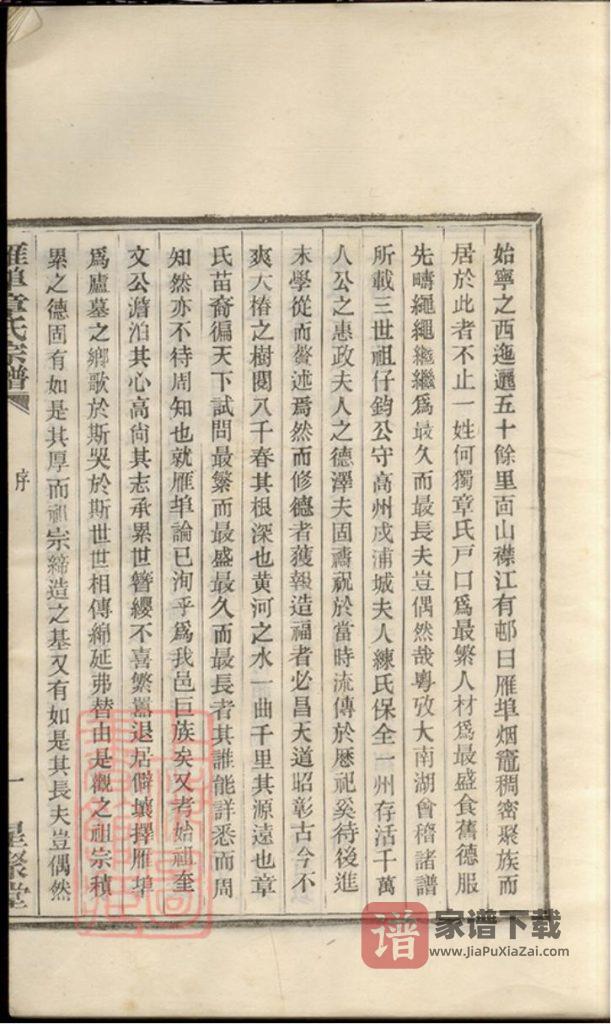 始寧之西迤邐五十餘里面山襟江有邨曰雁埠烟竈稠密聚族而
居於此者不止一姓何獨章氏戸口爲最繁人材爲最盛食舊德服
先疇繩繩繼繼爲最久而最長夫豈偶然哉粵攷大南湖會稽諸譜
所載三世祖仔鈞公守高州戍浦城夫人練氏保全一州存活千萬
人公之惠政夫人之德澤夫固禱祝於當時流傳於歷祀奚待後進
末學從而贅述焉然而修德者獲報造福者必昌天道昭彰古今不
爽大椿之樹閱八千春其根深也黄河之水一曲千里其源遠也章
氏苗裔徧天下試問最繁而最盛最久而最長者其誰能詳悉而周
知然亦不待周知也就雁埠論已洵乎爲我邑巨族矣又考始祖奎
文公澹泊其心高尙其志承累世簪纓不喜繁囂退居僻壤擇雁埠
爲廬墓之鄉歌於斯哭於斯世世相傳綿延弗替由是觀之祖宗積
累之德固有如是其厚而祖宗締造之基又有如是其長夫豈偶然
雁埠章氏宗譜
序
一
星聚堂
谱
家谱下载
www.JiaPuXiaZai.com